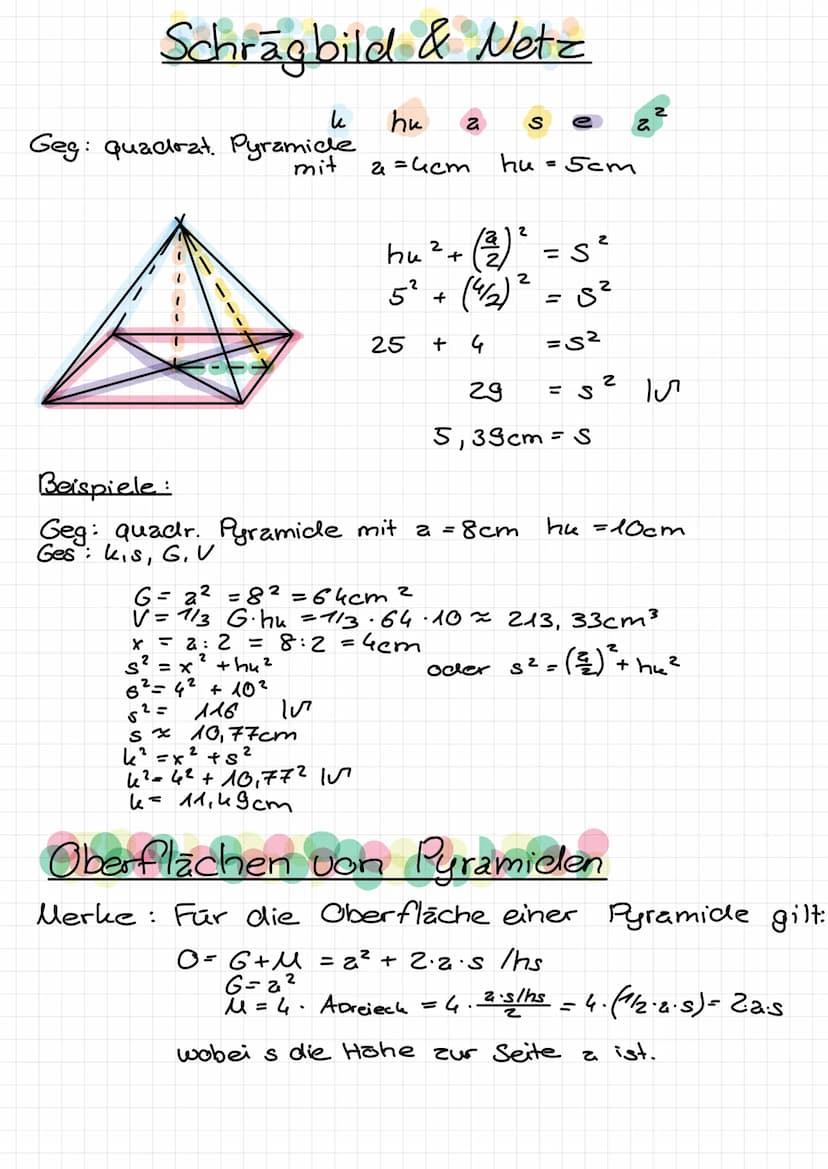 Schrägbild & Netz
k hk a s e a²
Geg: quadrat. Pyramide
mit a = 4cm hk = 5cm
hk² + (a/2)² = s²
5² + (4/2)² = s²
25 + 4 = s²
29 = s² |√
5,39cm = s
Beispiele:
Geg: quadr. Pyramide mit a = 8cm hk = 10cm
Ges: k,s, G, V
G = a² = 8² = 64cm²
V = 1/3 G·hk = 1/3 · 64 · 10 ≈ 213,33cm³
x = a : 2 = 8:2 = 4cm
s² = x² + hk² oder s² = (a/2)² + hk²
s² = 4² + 10²
s² = 116 |√
s ≈ 10,77cm
k² = x² + s²
k² = 4² + 10,77² |√
k = 11,49cm
Oberflächen von Pyramiden
Merke: Für die Oberfläche einer Pyramide gilt:
O = G+M = a² + 2·a·s /hs
G = a²
M = 4 · ADreieck = 4 · a·s/hs / 2 = 4·(1/2·a·s) = 2a·s
wobei s die Höhe zur Seite a ist.